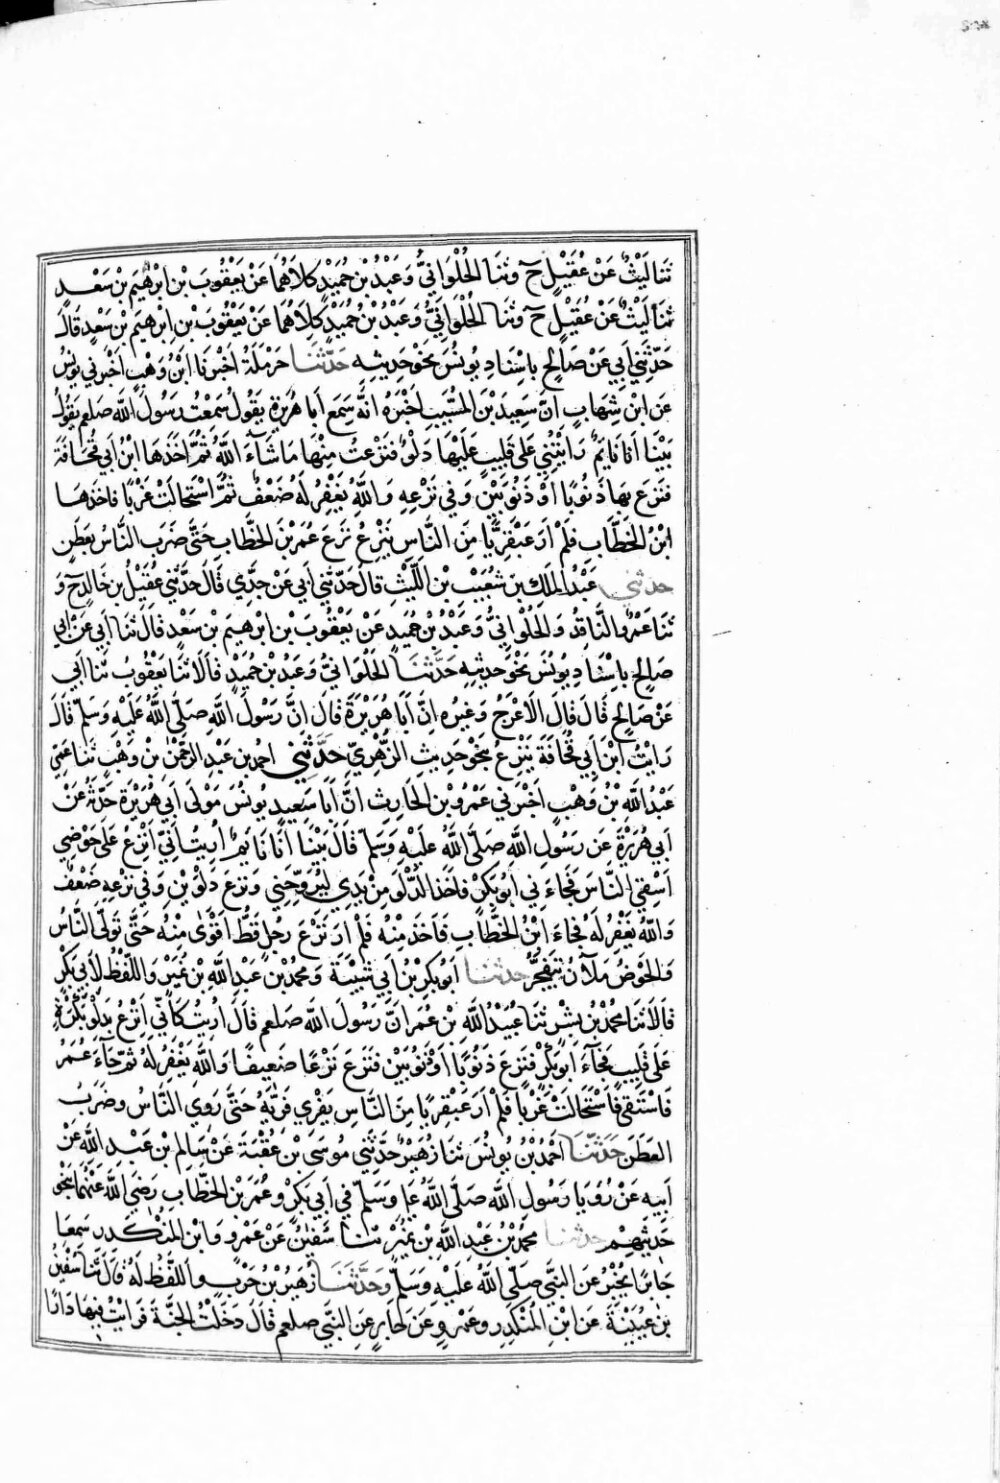 ثنا ليث عن عقيل ح وثنا الحلواني وعبد بن حميد كلاهما عن يعقوب بن ابرهيم بن سعد
ثنا ليث عن عقيل ح وثنا الحلواني وعبد بن حميد كلاهما عن يعقوب بن ابرهيم بن سعد قال
حدثني ابي عن صالح باسناد يونس نحو حديثه حدثنا حرملة اخبرنا ابن وهب اخبرني يونس
عن ابن شهاب ان سعيد بن المسيب اخبره انه سمع ابا هريرة يقول سمعت رسول الله صلعم يقول
بينا انا نايم رايتني على قليب عليها دلو فنزعت منها ما شاء الله ثم اخذها ابن ابي قحافة
فنزع بها ذنوبا او ذنوبين وفي نزعه والله يغفر له ضعف ثم استحالت غربا فاخذها
ابن الخطاب فلم ار عبقريا من الناس ينزع نزع عمر بن الخطاب حتى ضرب الناس بعطن
حدثني عبد الملك بن شعيب بن الليث قال حدثني ابي عن جدي قال حدثني عقيل بن خالد ح و
ثنا عمرو الناقد والحلواني وعبد بن حميد عن يعقوب بن ابرهيم بن سعد قال ثنا ابي عن ابي
صالح باسناد يونس نحو حديثه حدثنا الحلواني وعبد بن حميد قالا ثنا يعقوب ثنا ابي
عن صالح قال قال الاعرج وغيره ان ابا هريرة قال ان رسول الله صلى الله عليه وسلم قال
رايت ابن ابي قحافة ينزع بنحو حديث الزهري حدثني احمد بن عبد الرحمن بن وهب ثنا عمي
عبد الله بن وهب اخبرني عمرو بن الحارث ان ابا سعيد يونس مولى ابي هريرة حدثه عن
ابي هريرة عن رسول الله صلى الله عليه وسلم قال بينا انا نايم اريت اني انزع على حوضي
اسقي الناس فجاءني ابو بكر فاخذ الدلو من يدي ليروحني ونزع دلوين وفي نزعه ضعف
والله يغفر له فجاء ابن الخطاب فاخذ منه فلم ار نزع رجل قط اقوى منه حتى تولى الناس
والحوض ملآن يتفجر حدثنا ابو بكر بن ابي شيبة ومحمد بن عبد الله بن نمير واللفظ لابي بكر
قالا ثنا محمد بن بشر ثنا عبيد الله بن عمر ان رسول الله صلعم قال اريت كاني انزع بدلو بكرة
على قليب فجاء ابو بكر فنزع ذنوبا او ذنوبين فنزع نزعا ضعيفا والله يغفر له ثم جاء عمر
فاستقى فاستحالت غربا فلم ار عبقريا من الناس يفري فريه حتى روي الناس وضرب
العطن حدثنا احمد بن يونس ثنا زهير حدثني موسى بن عقبة عن سالم بن عبد الله عن
ابيه عن رويا رسول الله صلى الله عليه وسلم في ابي بكر وعمر بن الخطاب رضي الله عنهما بنحو
حديثهم حدثنا محمد بن عبد الله بن نمير ثنا سفين عن عمرو وابن المنكدر سمعا
جابرا يخبر عن النبي صلى الله عليه وسلم وحدثنا زهير بن حرب واللفظ له قال ثنا سفين
بن عيينة عن ابن المنكدر وعمرو عن جابر عن النبي صلعم قال دخلت الجنة فرايت فيها دارا